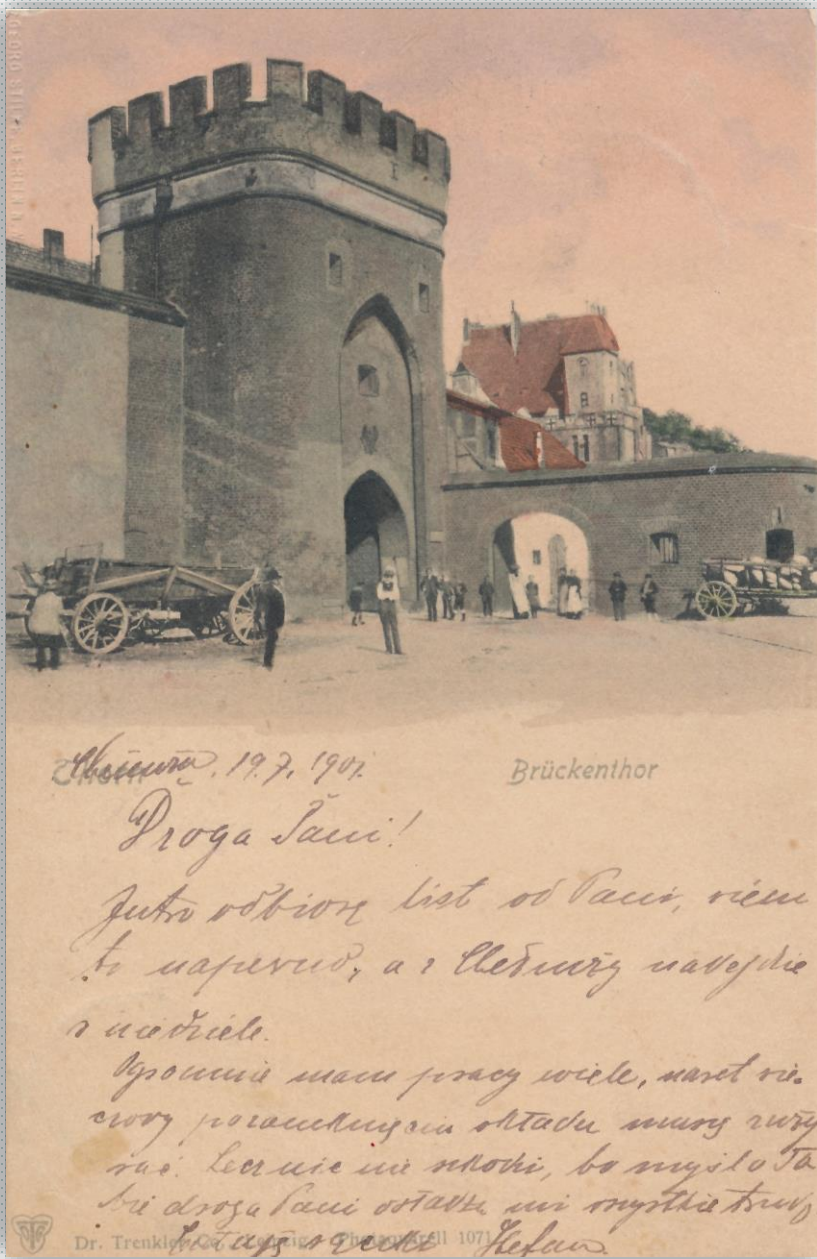 Chełmża, 19.7.1901.
Brückenthor
Droga Pani!
Jutro odbiorę list od Pani, wiem
to napewno, a z Chełmży nadejdzie
w niedziele.
Ogromnie mam pracy wiele, nawet wie-
czory po zamknięciu składu muszę zuży
wać. Lecz nic nie szkodzi, bo myśl o To
bie droga Pani osładza mi wszystkie trudy
Stefan.
Dr. Trenkler Co., Leipzig. Photoquarell 1071